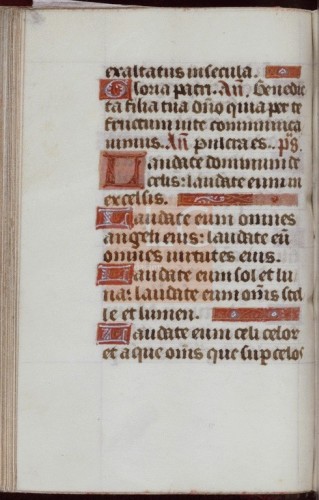 exaltatus in secula.
Gloria patri. Añ. Benedic
ta filia tua dño quia per te
fructum vite communica
vimus. Añ pulcra es.. ps.
Laudate dominum de
celis: laudate eum in
excelsis.
Laudate eum omnes
angeli eius: laudate eū
omnes virtutes eius.
Laudate eum sol et lu
na: laudate eum oms̄ stel
le et lumen.
Laudate eum celi celor
et aque oms̄ que sup celos